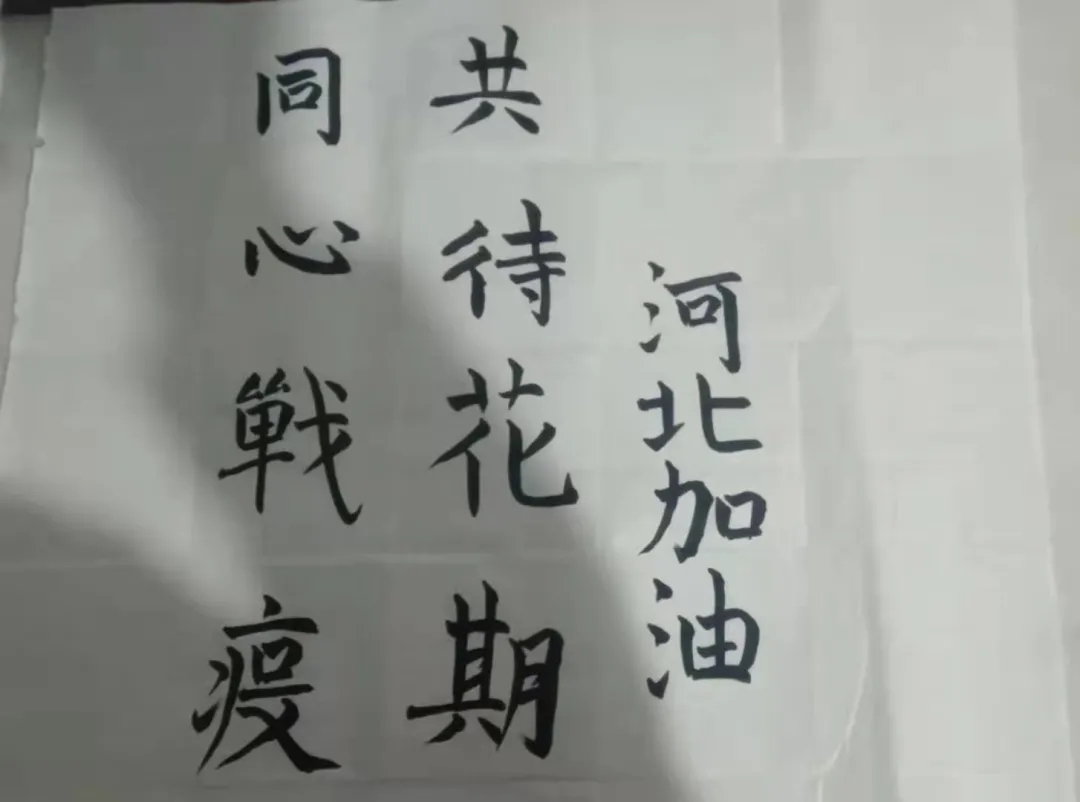 同心戰疫
共待花期
河北加油